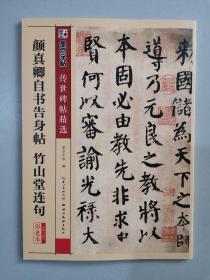 敕國儲為天下之
導乃元良之教將以
本固必由教先非求
賢何以審諭光祿大
墨点字帖
传世碑帖精选
颜真卿自书告身帖 竹山堂连句
彩色本